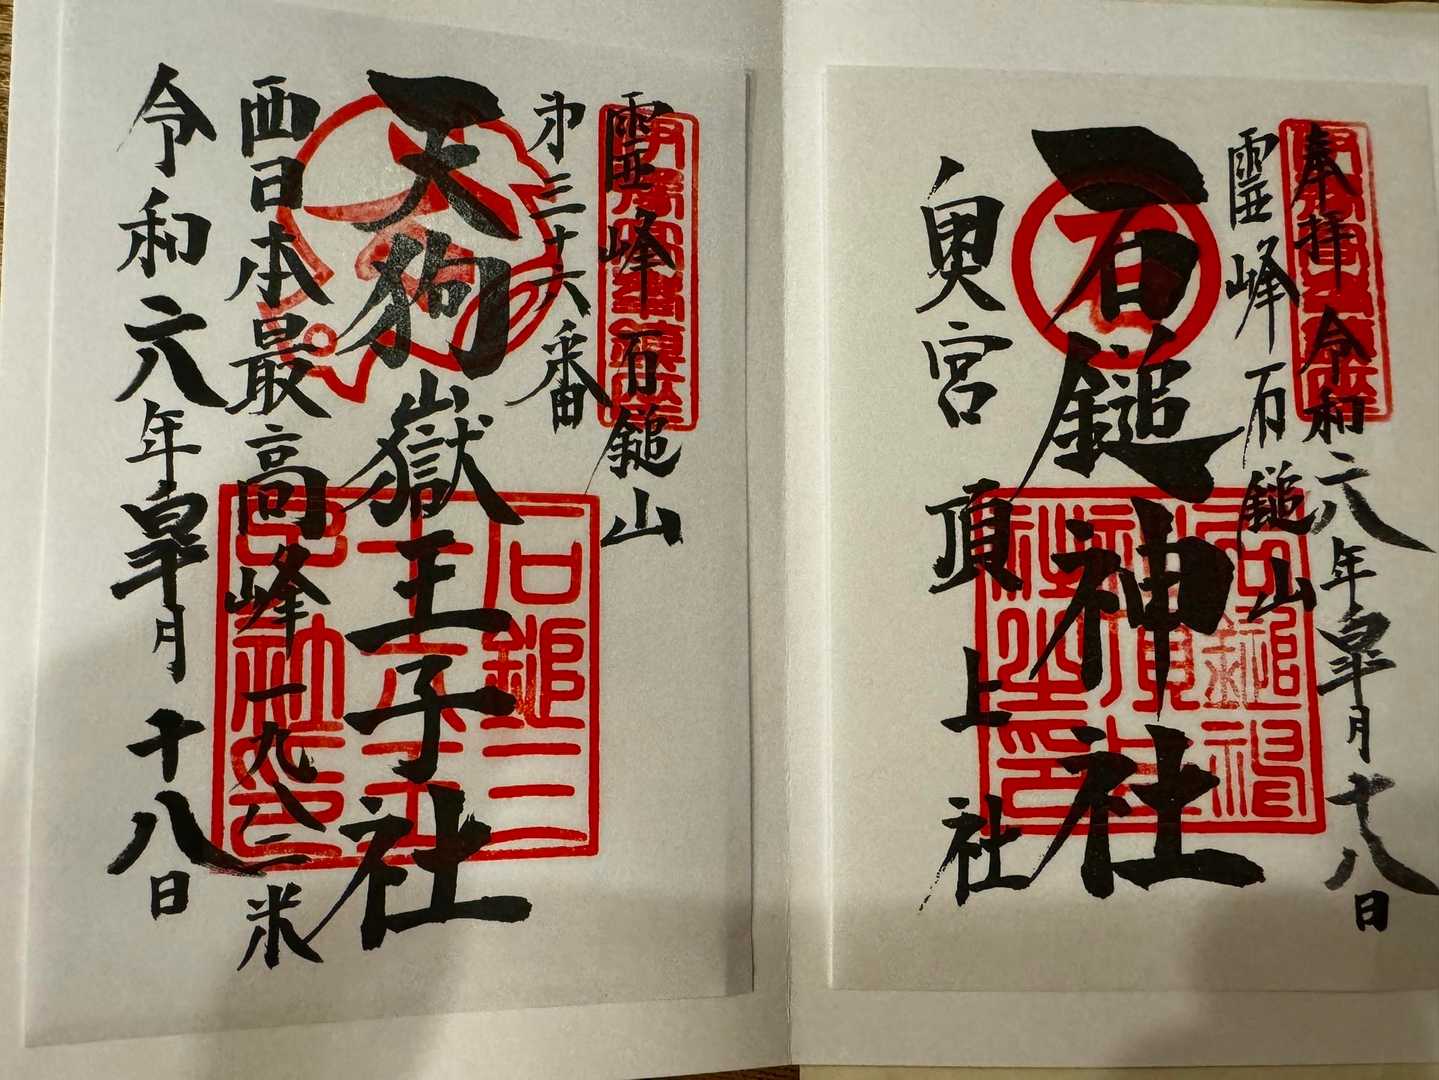 奉拝 令和六年皐月十八日
霊峰石鎚山
石鎚神社
奥宮頂上社
石
霊峰石鎚山
第三十六番
天狗嶽王子社
西日本最高峰一九八二米
令和六年皐月十八日
石鎚三
十六王子
社印